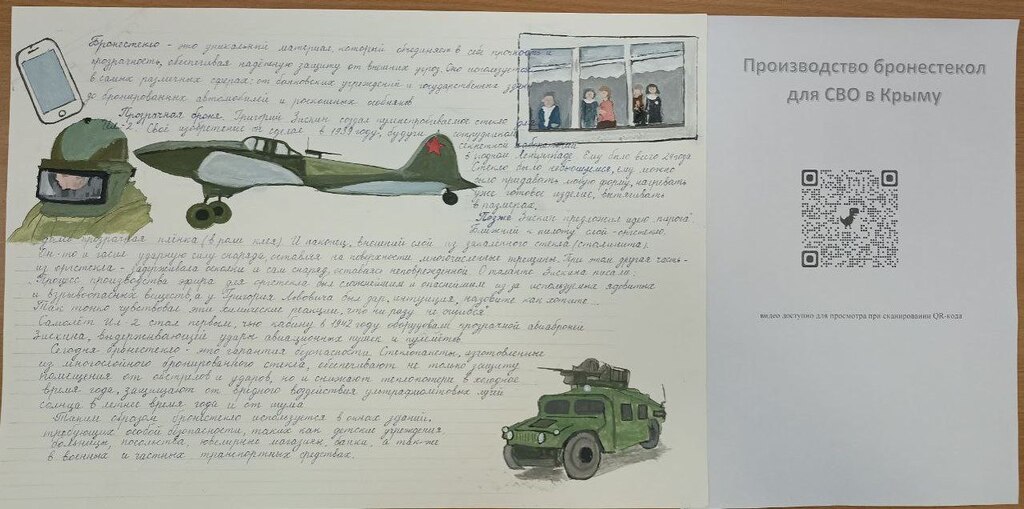 Бронестекло - это уникальный материал, который объединяет в себе прочность и
прозрачность, обеспечивая надёжную защиту от внешних угроз. Оно используется
в самых различных сферах: от банковских учреждений и государственных зданий
до бронированных автомобилей и роскошных особняков.
Прозрачная броня. Григорий Зискин создал пулепробиваемое стекло для
Ил-2. Своё изобретение он сделал в 1939 году, будучи сотрудником
секретной лаборатории
в городе Ленинграде. Ему было всего 24 года
Стекло было небьющемся, ему можно
было придавать любую форму, нагревать
уже готовое изделие, вытягивать
в размерах.
Позже Зискин предложил идею "пирога"
Ближний к пилоту слой - оргстекло.
прозрачная плёнка (в роли клея). И наконец, внешний слой из закаленного стекла (сталинита).
Он-то и гасил ударную силу снаряда, оставляя на поверхности многочисленные трещины. При этом другая часть -
из оргстекла - задерживала осколки и сам снаряд, оставаясь неповрежденной. О таланте Зискина писали:
"Процесс производства эфира для оргстекла был сложнейшим и опаснейшим из-за используемых ядовитых
и взрывоопасных веществ, а у Григория Львовича был дар, интуиция, назовите как хотите...
Так тонко чувствовал эти химические реакции, что ни разу не ошибся"
Самолёт Ил-2 стал первым, чью кабину в 1942 году оборудовали прозрачной авиаброней
Зискина, выдерживающей удары авиационных пушек и пулемётов
Сегодня бронестекло - это гарантия безопасности. Стеклопакеты, изготовленные
из многослойного бронированного стекла, обеспечивают не только защиту
помещения от обстрелов и ударов, но и снижают теплопотери в холодное
время года, защищают от вредного воздействия ультрафиолетовых лучей
солнца в летнее время года и от шума
Таким образом бронестекло используется в окнах зданий,
требующих особой безопасности, таких как детские учреждения
больницы, посольства, ювелирные магазины, банки, а так-же
в военных и частных транспортных средствах.
Производство бронестекол
для СВО в Крыму
видео доступно для просмотра при сканировании QR-кода